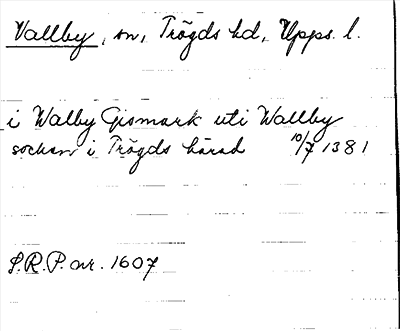 Vallby, sn, Trögds hd, Upps. l.
i Walby Gismark uti Wallby
socken i Trögds härad 10/7 1381
S.R.P. nr. 1607